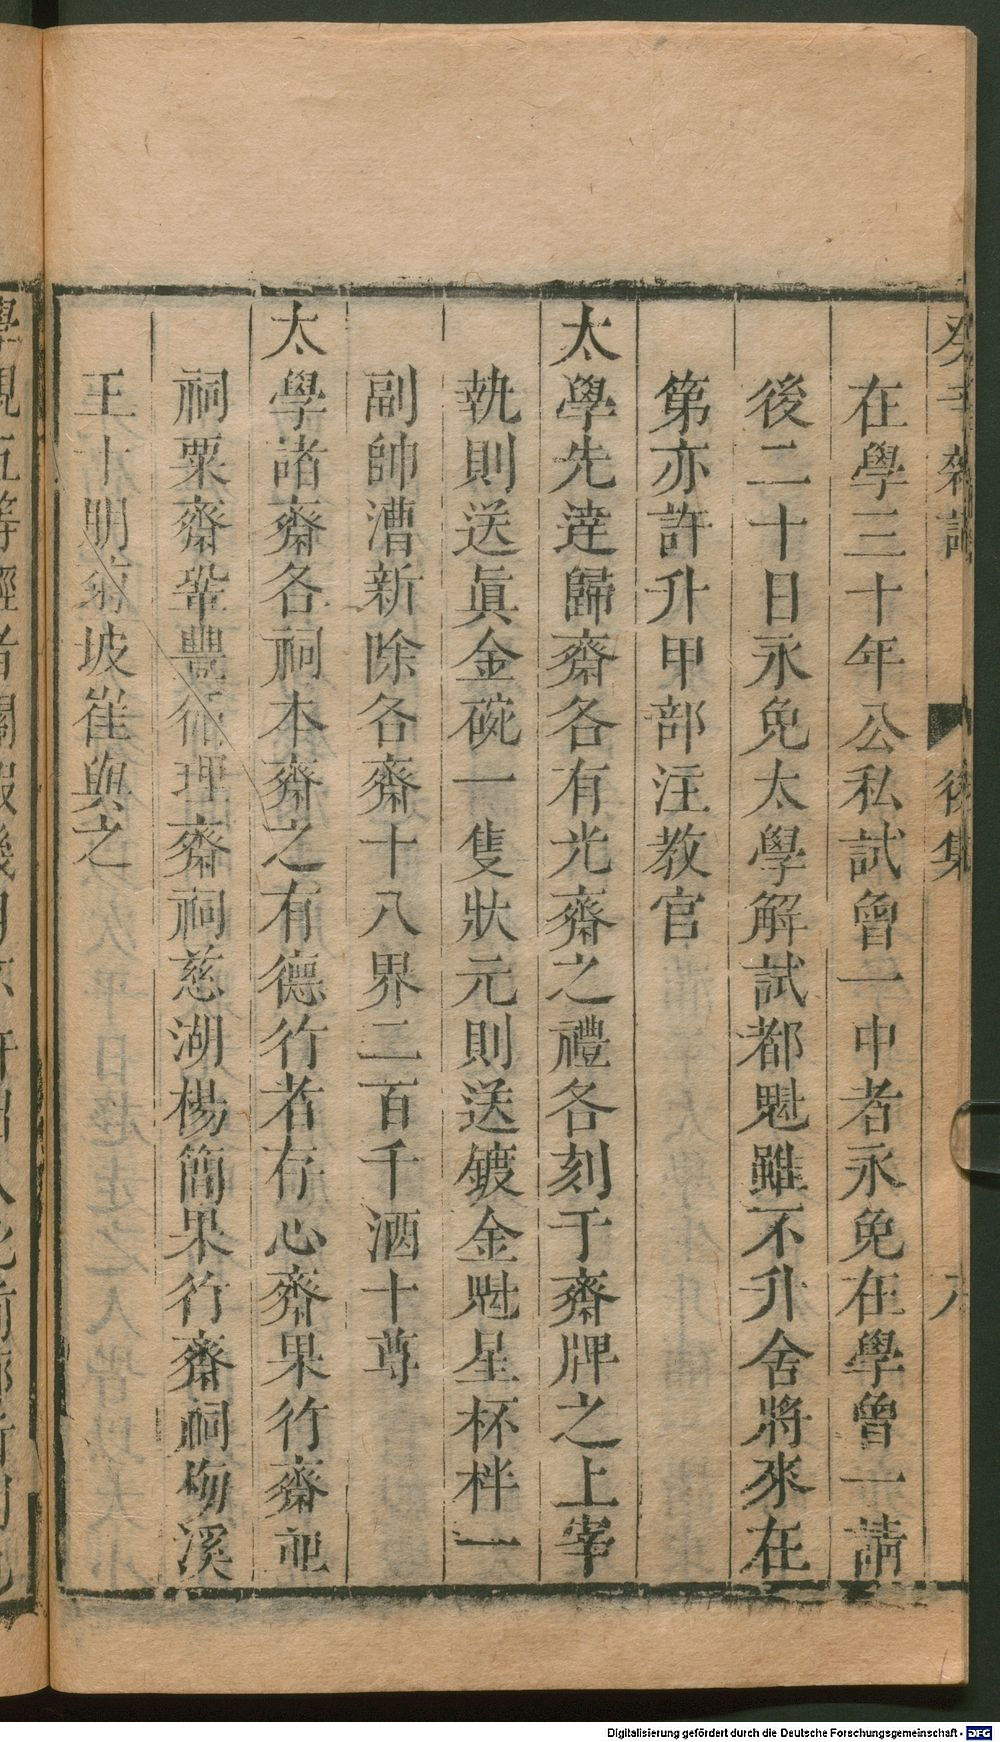 癸辛雜識 後集 八
在學三十年公私試曾一中者永免在學曾一請
後二十日永免太學解試都魁雖不升舍將來在
第亦許升甲部注教官
太學先達歸齋各有光齋之禮各刻于齋牌之上宰
執則送眞金碗一隻狀元則送鍍金魁星杯柈一
副帥漕新除各齋十八界二百千酒十尊
太學諸齋各祠本齋之有德行者存心齋果行齋祀
祠粟齋鞏豐循理齋祠慈湖楊簡果行齋祠
溪
王十朋 坡崔與之
Digitalisierung gefördert durch die Deutsche Forschungsgemeinschaft - DFG